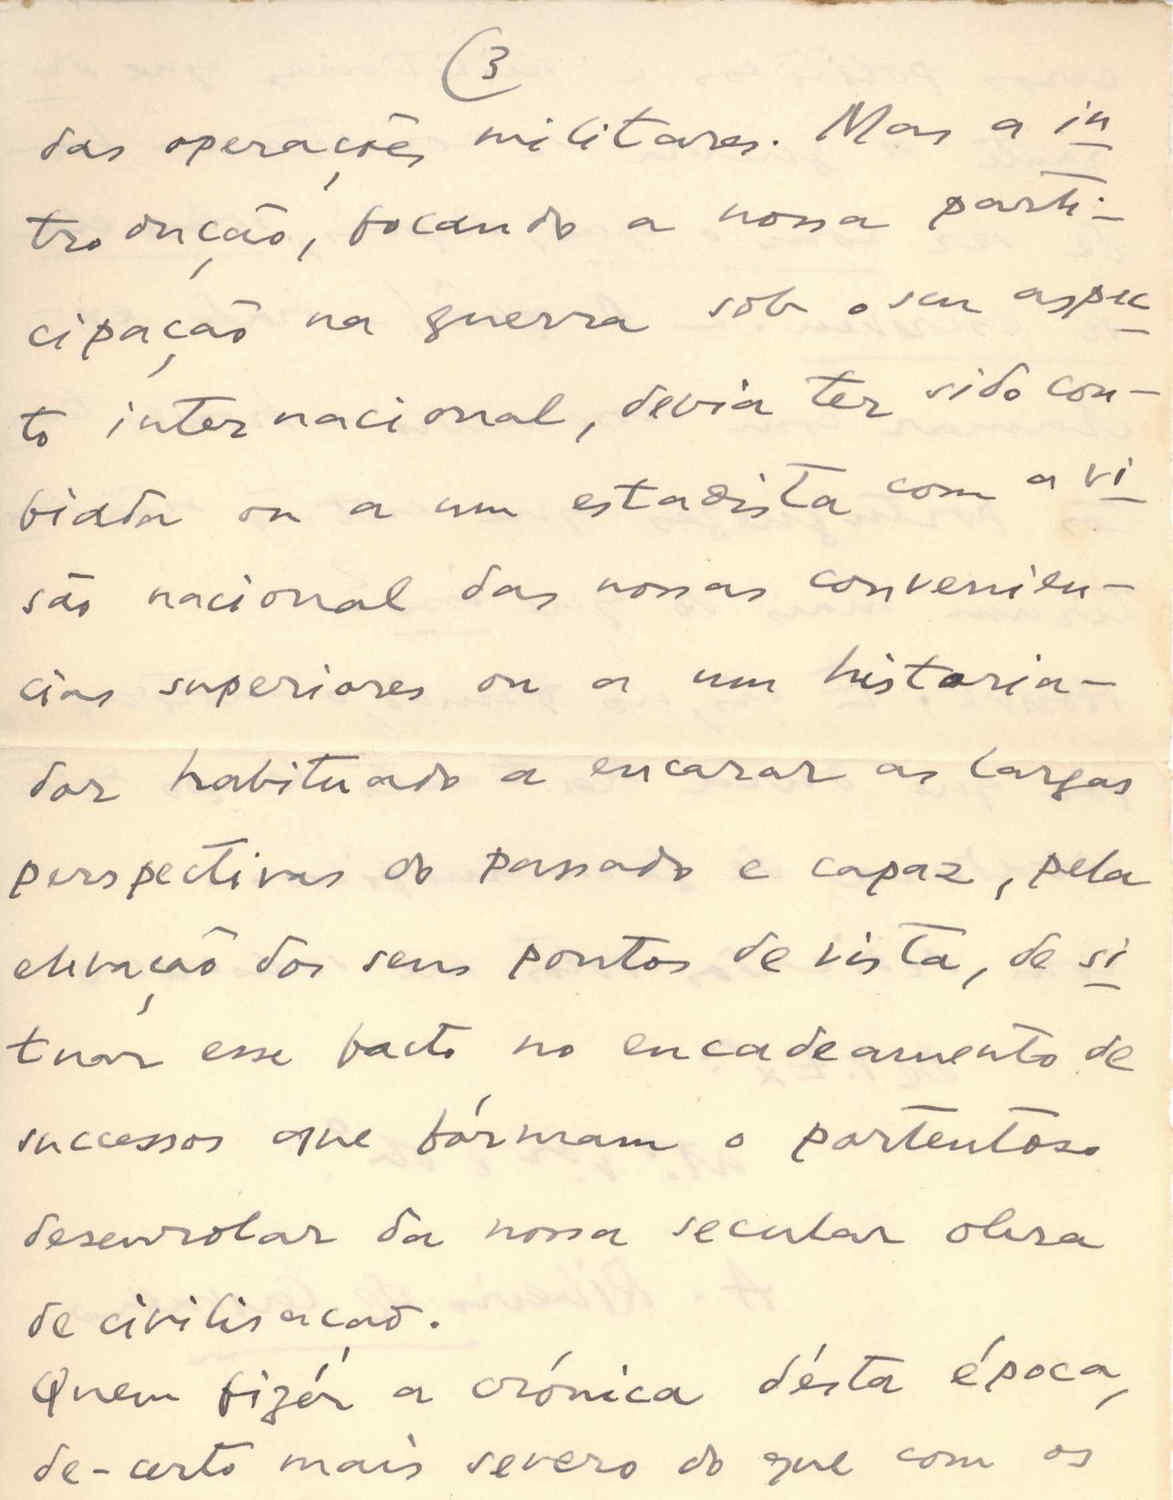 (3
das operações militares. Mas a in
trodução, focando a nossa parti-
cipação na guerra sob o seu aspec
to internacional, devia ter sido con-
fiada ou a um estadista com a vi
são nacional das nossas convenien-
cias superiores ou a um historia-
dor habituado a encarar as largas
perspectivas do passado e capaz, pela
elevação dos seus pontos de vista, de si
tuar esse facto no encadeamento de
successos que fórmam o portentoso
desenrolar da nossa secular obra
de civilisação.
Quem fizér a crónica désta época,
de-certo mais severo do que com os